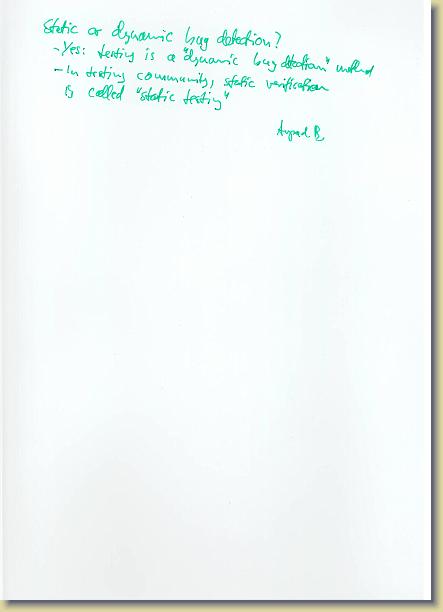 Static or dynamic bug detection?
- Yes: testing is a "dynamic bug detection" method
- In testing community, static verification
is called "static testing"
Arpad B.